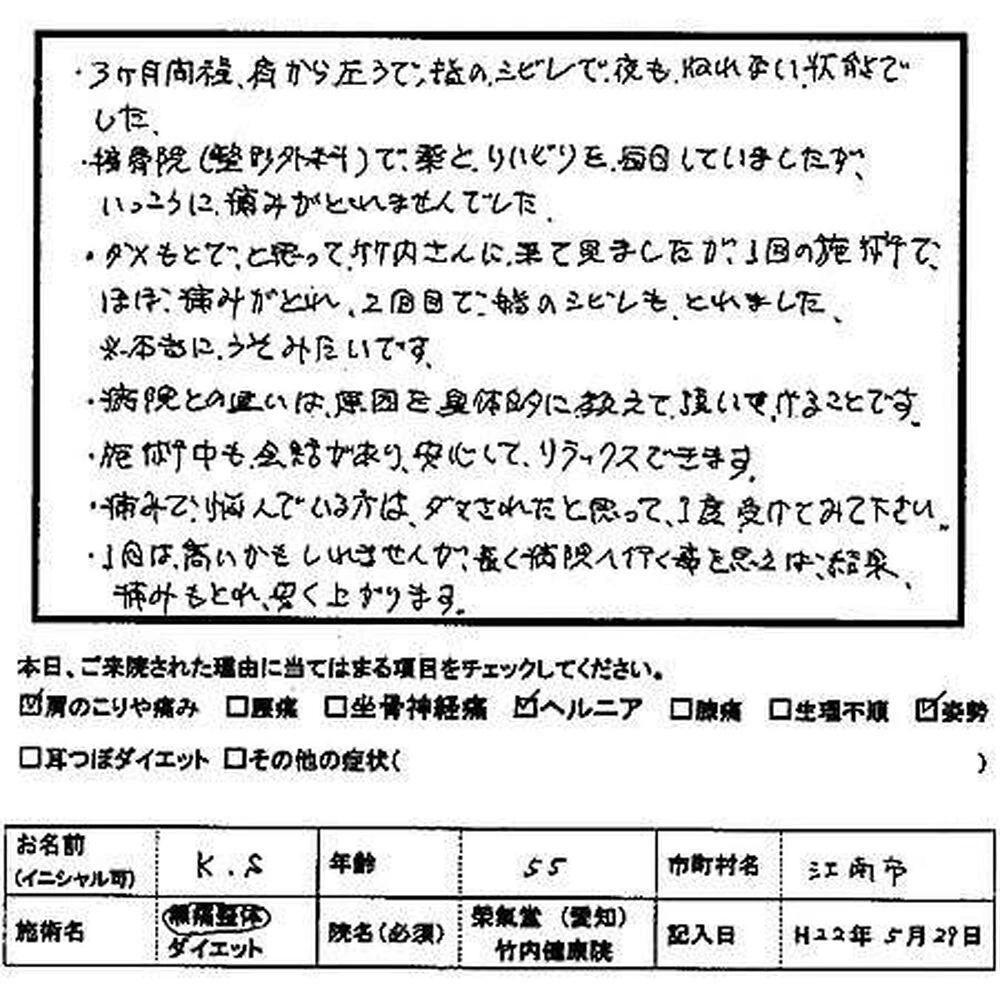 ・3ヶ月間程、肩から左うで、指の、シビレで、夜も、ねれない、状態で
した、
・接骨院(整形外科)で、薬と、リハビリを、毎日していましたが、
いっこうに、痛みがとれませんでした、
・ダメもとで、と思って、竹内さんに、来て見ましたが、1回の施術で、
ほぼ、痛みがとれ、2回目で、指のシビレも、とれました、
※本当に、うそみたいです。
・病院との違いは、原因を、具体的に教えて、頂いむけることです。
・施術中も、会話があり、安心して、リラックスできます。
・痛みで、悩んでいる方は、ダマされたと思って、1度受けてみて下さい。
・1回は、高いかもしれませんが、長く病院へ行く事を思えば、結果、
痛みもとれ、安く上がります。
本日、ご来院された理由に当てはまる項目をチェックしてください。
☑肩のこりや痛み □腰痛 □坐骨神経痛 ☑ヘルニア □膝痛 □生理不順 ☑姿勢
□耳つぼダイエット □その他の症状( )
お名前(イニシャル可) K.S 年齢 55 市町村名 江南市
施術名 無痛整体 ダイエット 院名(必須) 榮氣堂(愛知)竹内健康院 記入日 H22年5月29日